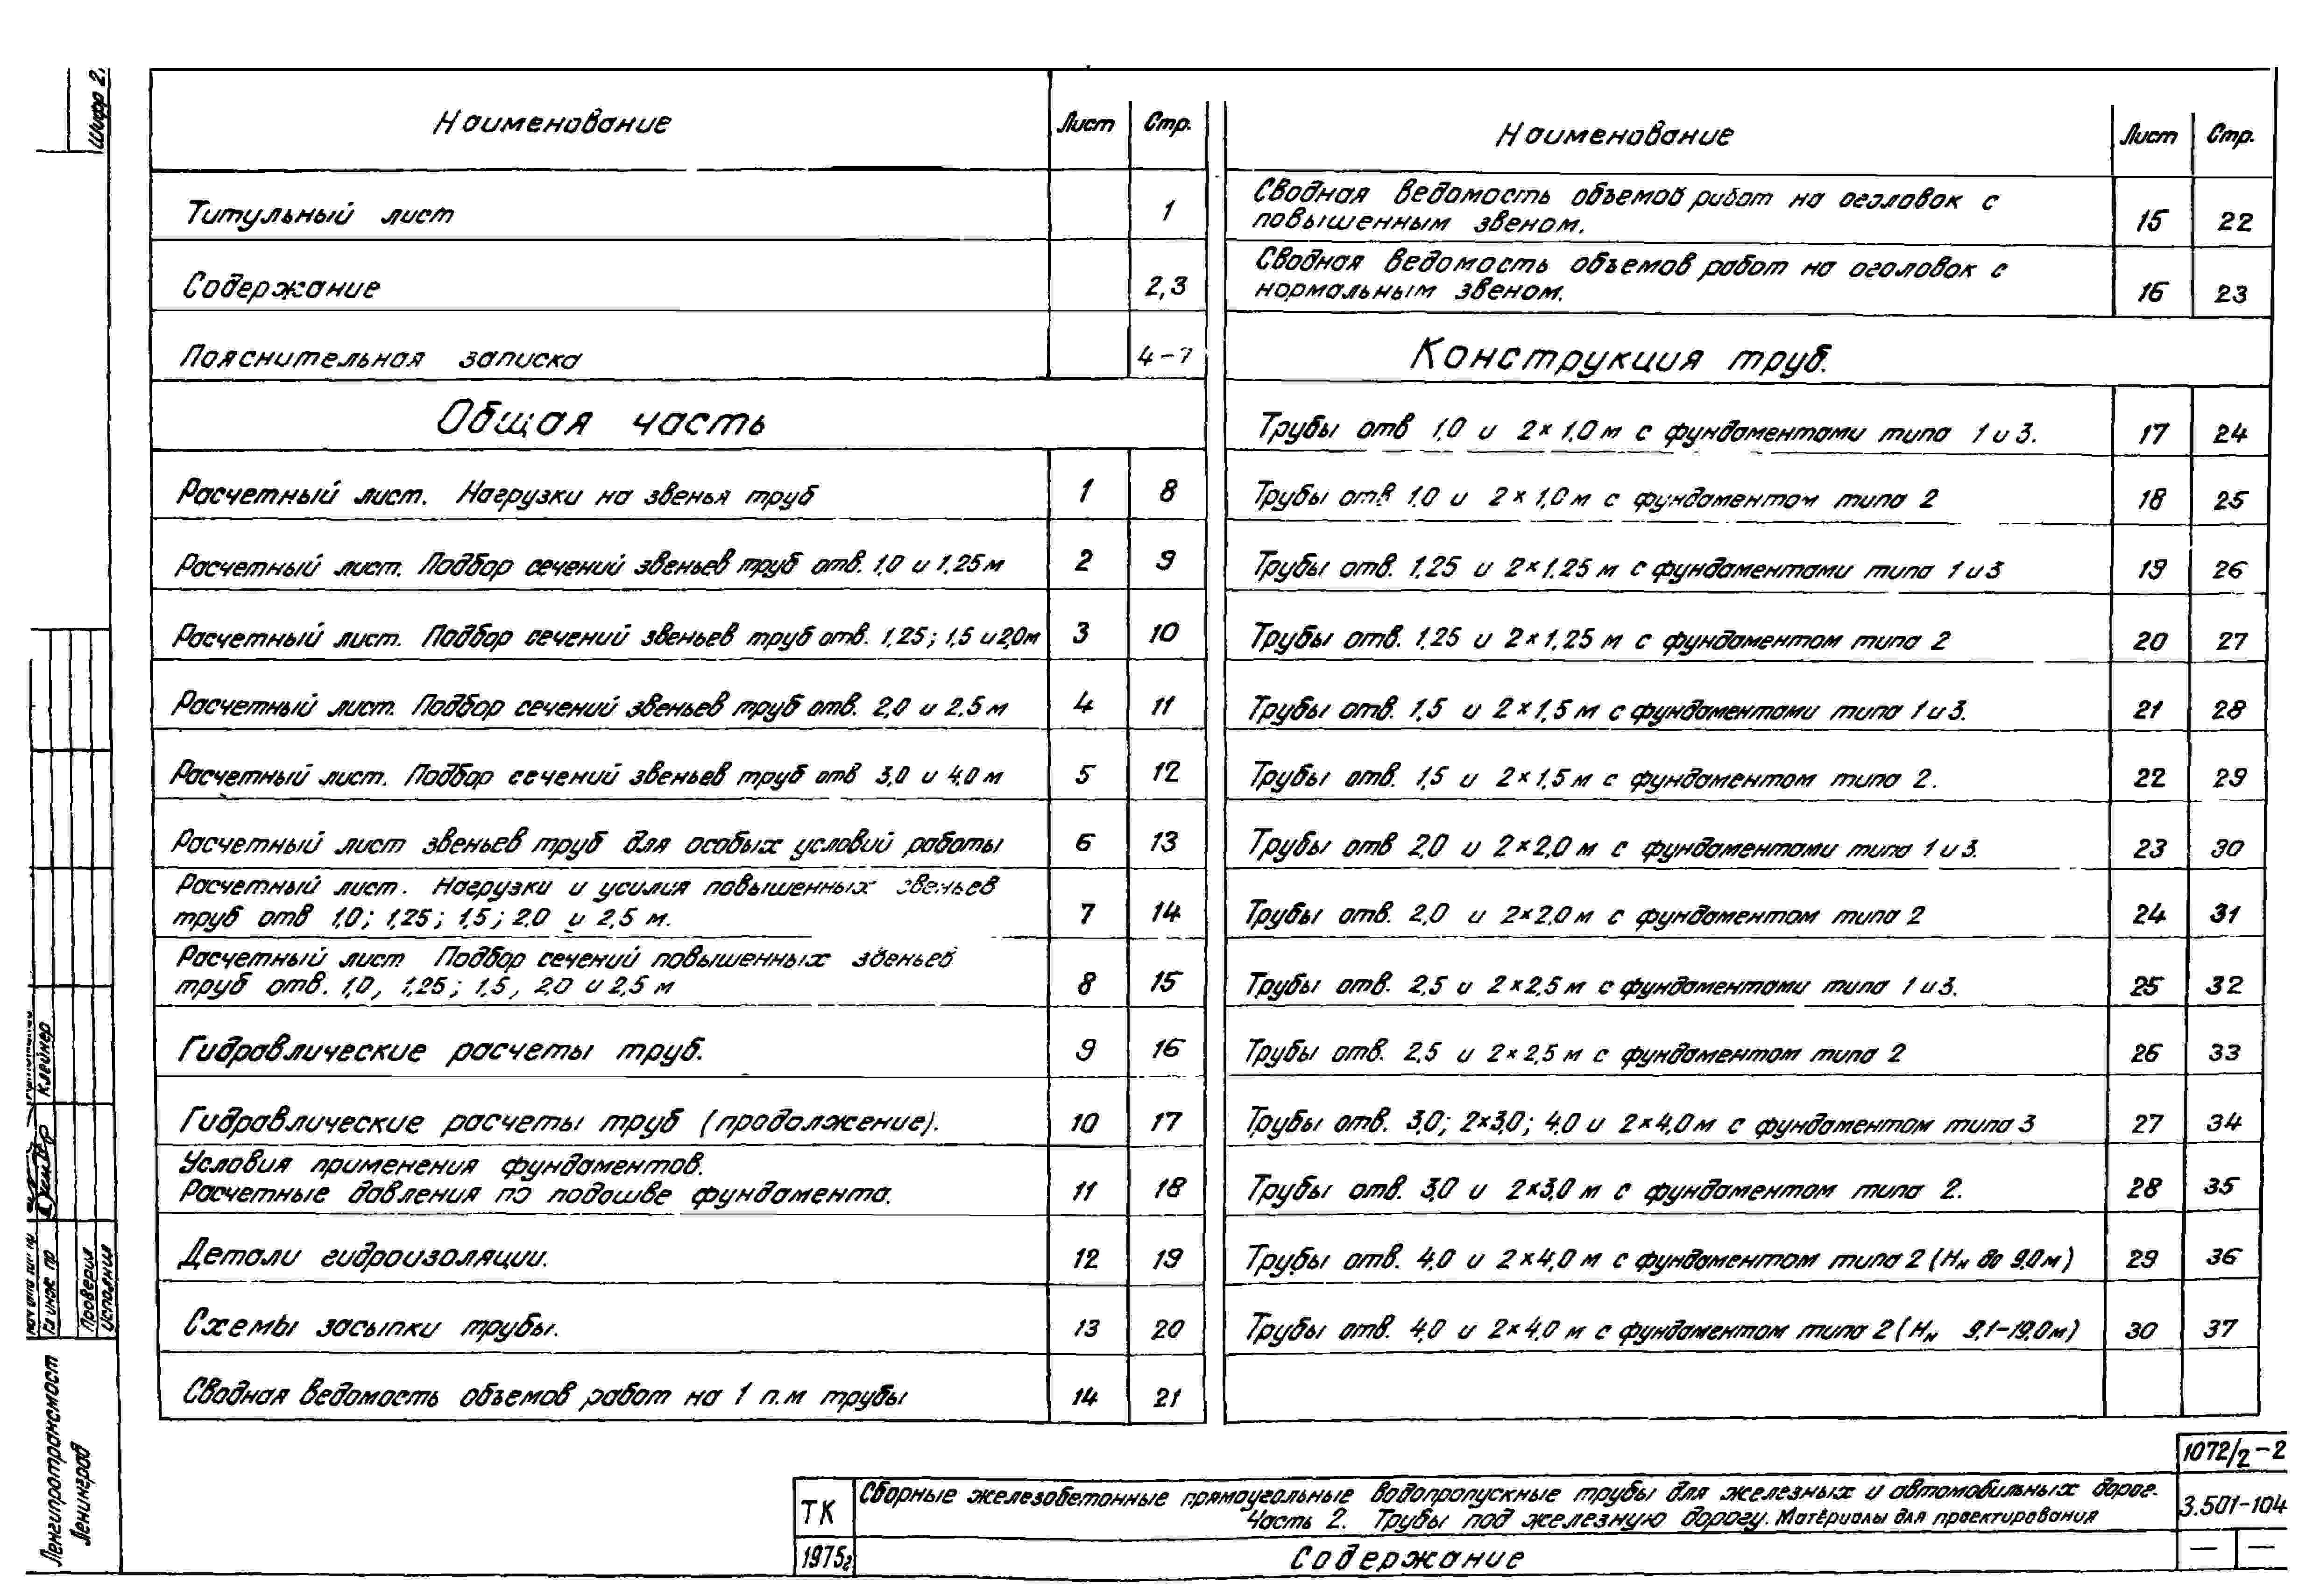 Шифр 2
Наименование Лист Стр.
Титульный лист 1
Содержание 2,3
Пояснительная записка 4-7
Общая часть
Расчетный лист. Нагрузки на звенья труб 1 8
Расчетный лист. Подбор сечений звеньев труб отв. 1,0 и 1,25 м 2 9
Расчетный лист. Подбор сечений звеньев труб отв. 1,25; 1,5 и 2,0м 3 10
Расчетный лист. Подбор сечений звеньев труб отв. 2,0 и 2,5 м 4 11
Расчетный лист. Подбор сечений звеньев труб отв 3,0 и 4,0 м 5 12
Расчетный лист звеньев труб для особых условий работы 6 13
Расчетный лист. Нагрузки и усилия повышенных звеньев
труб отв 1,0; 1,25; 1,5; 2,0 и 2,5 м. 7 14
Расчетный лист Подбор сечений повышенных звеньев
труб отв. 1,0, 1,25; 1,5, 2,0 и 2,5 м 8 15
Гидравлические расчеты труб. 9 16
Гидравлические расчеты труб (продолжение). 10 17
Условия применения фундаментов.
Расчетные давления по подошве фундамента. 11 18
Детали гидроизоляции. 12 19
Схемы засыпки трубы. 13 20
Сводная ведомость объемов работ на 1 п.м трубы 14 21
Наименование Лист Стр.
Сводная ведомость объемов работ на оголовок с
повышенным звеном. 15 22
Сводная ведомость объемов работ на оголовок с
нормальным звеном. 16 23
Конструкция труб.
Трубы отв 1,0 и 2×1,0 м с фундаментами типа 1 и 3. 17 24
Трубы отв 1,0 и 2×1,0 м с фундаментом типа 2 18 25
Трубы отв. 1,25 и 2×1,25 м с фундаментами типа 1 и 3 19 26
Трубы отв. 1,25 и 2×1,25 м с фундаментом типа 2 20 27
Трубы отв. 1,5 и 2×1,5 м с фундаментами типа 1 и 3. 21 28
Трубы отв. 1,5 и 2×1,5 м с фундаментом типа 2. 22 29
Трубы отв 2,0 и 2×2,0 м с фундаментами типа 1 и 3. 23 30
Трубы отв. 2,0 и 2×2,0 м с фундаментом типа 2 24 31
Трубы отв. 2,5 и 2×2,5 м с фундаментами типа 1 и 3. 25 32
Трубы отв. 2,5 и 2×2,5 м с фундаментом типа 2 26 33
Трубы отв. 3,0; 2×3,0; 4,0 и 2×4,0 м с фундаментом типа 3 27 34
Трубы отв. 3,0 и 2×3,0 м с фундаментом типа 2. 28 35
Трубы отв. 4,0 и 2×4,0 м с фундаментом типа 2 (Нн до 9,0 м) 29 36
Трубы отв. 4,0 и 2×4,0 м с фундаментом типа 2 (Нн 9,1-19,0 м) 30 37
Клейнер
Гл инж пр
Проверил
Исполнил
Ленгипротрансмост
Ленинград
1072/2-2
ТК Сборные железобетонные прямоугольные водопропускные трубы для железных и автомобильных дорог.
Часть 2. Трубы под железную дорогу. Материалы для проектирования 3.501-104
1975г Содержание — —